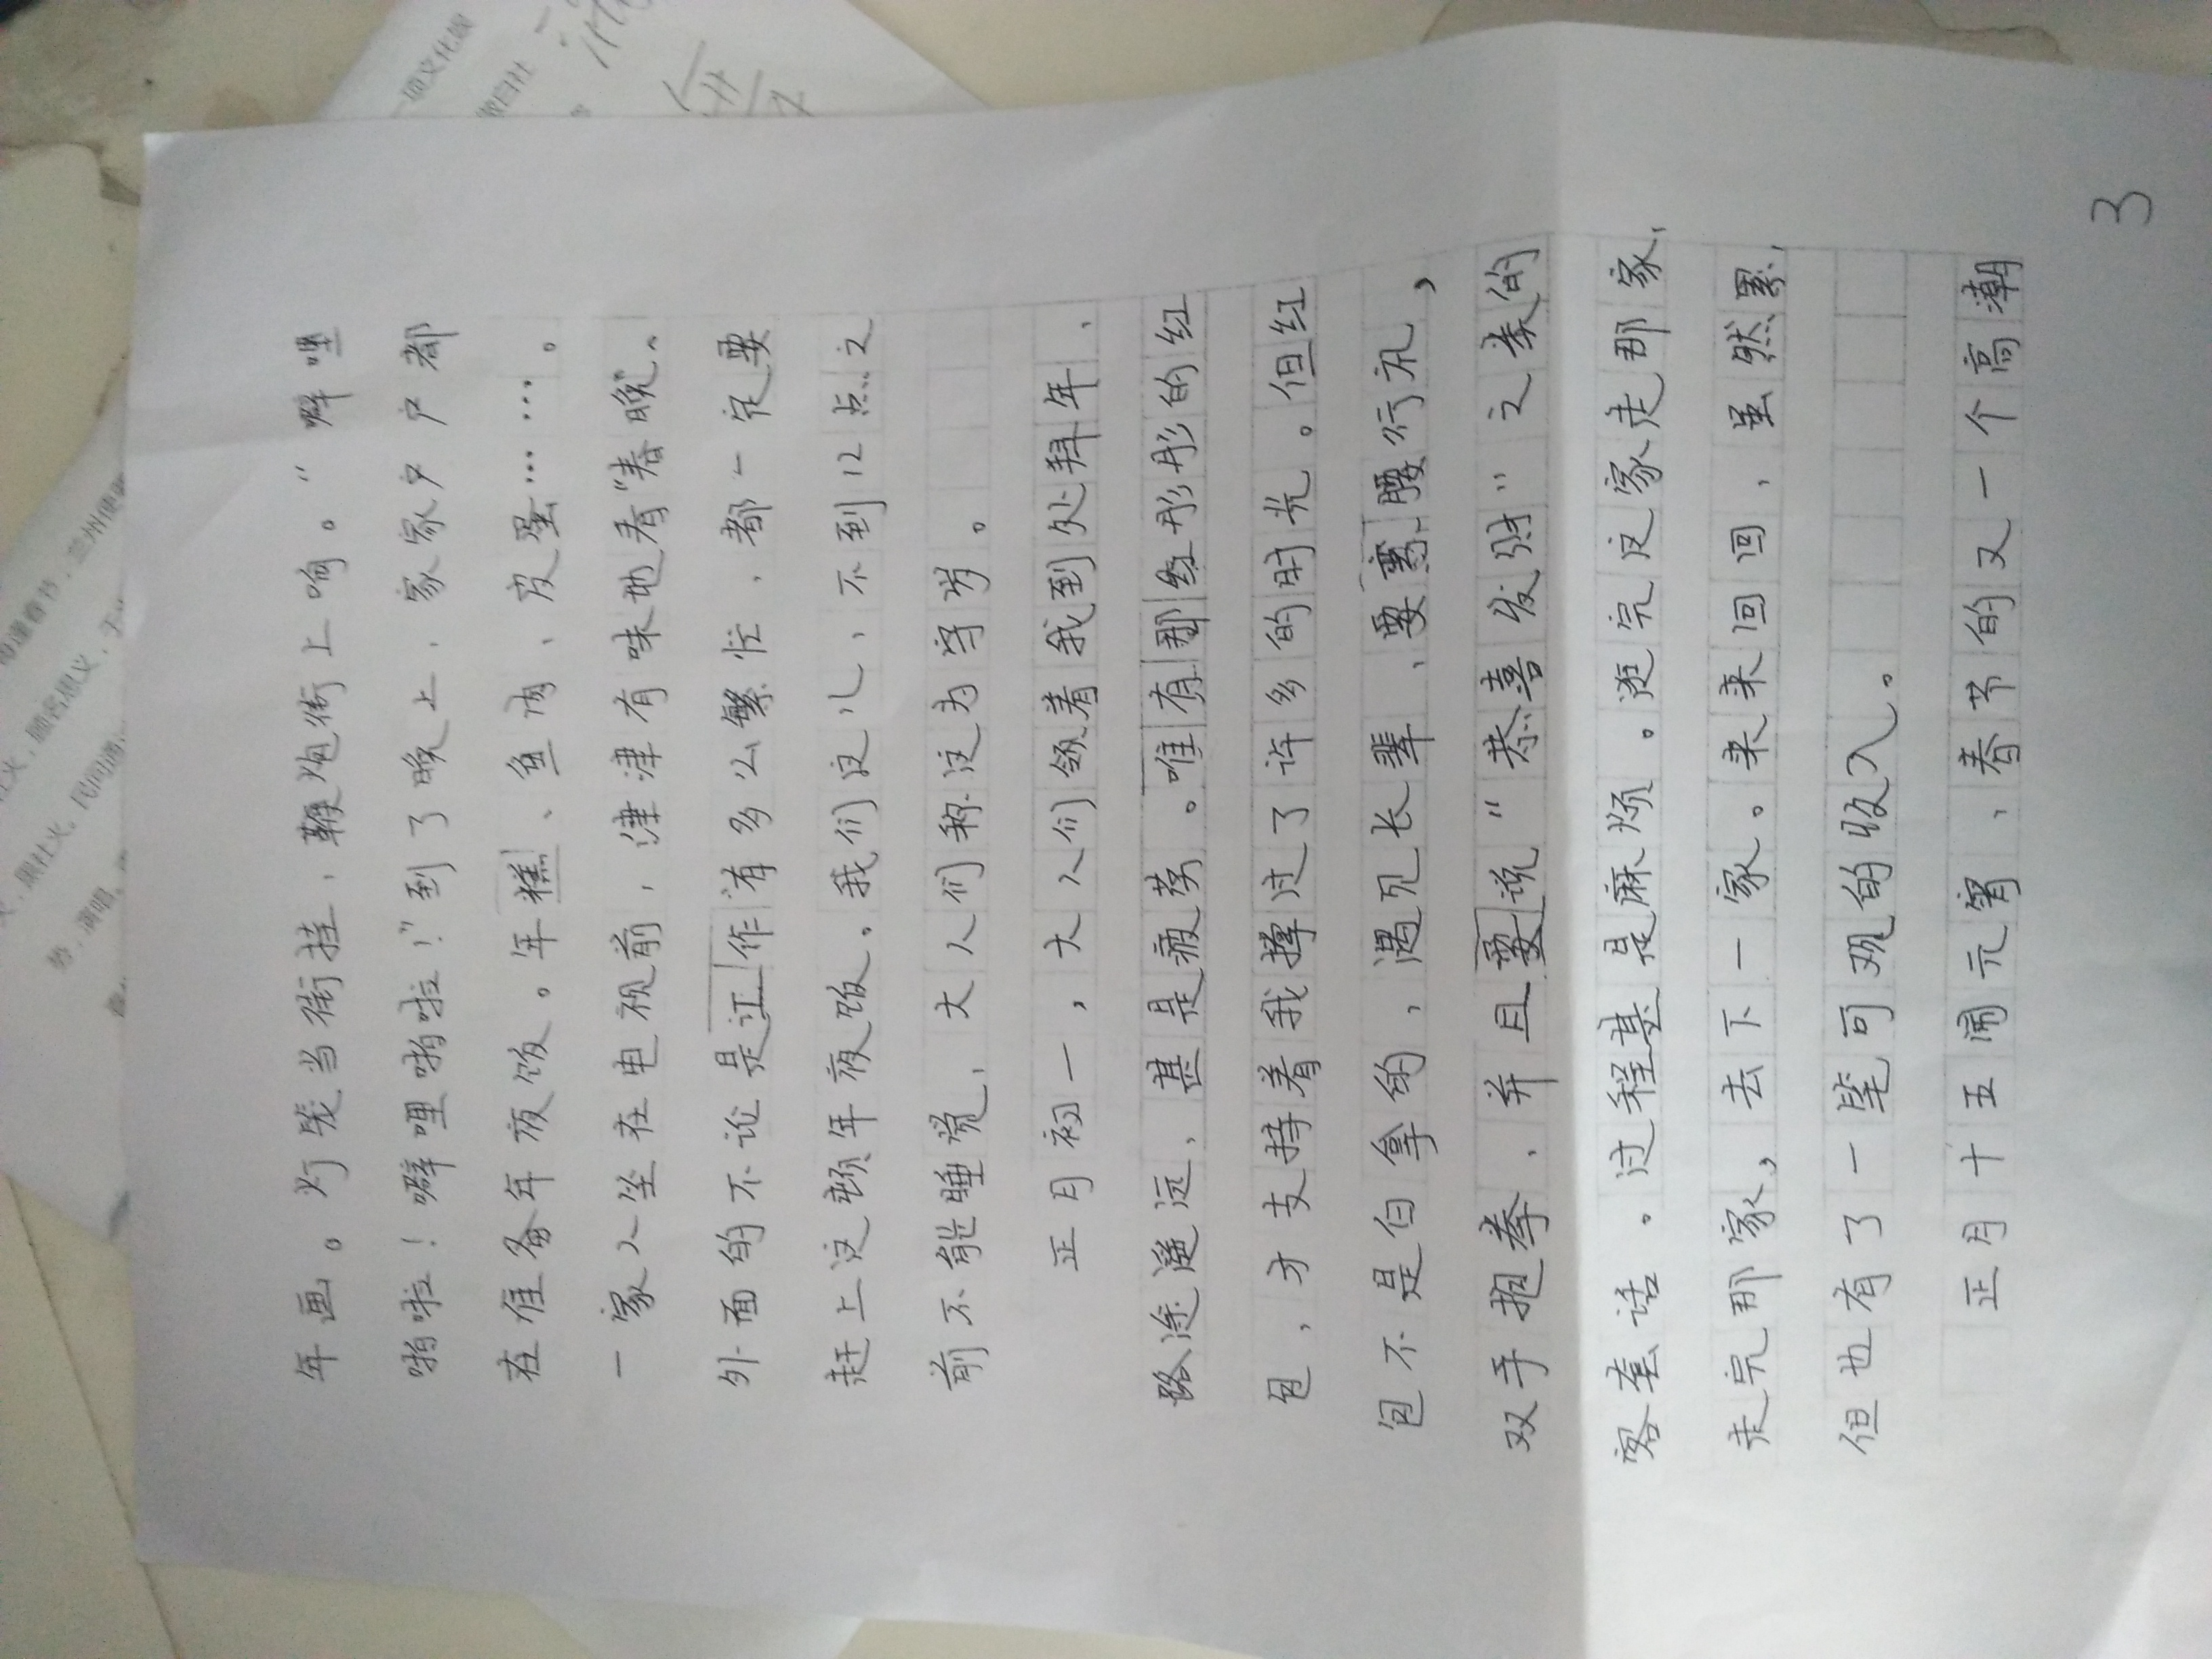 年画。灯笼当街挂，鞭炮街上响。“噼哩
啪啦！噼哩啪啦！”到了晚上，家家户户都
在准备年夜饭。年糕、鱼肉、皮蛋……。
一家人坐在电视前，津津有味地看“春晚”。
外面的不论是工作有多么繁忙，都一定要
赶上这顿年夜饭。我们这儿，不到12点之
前不能睡觉，大人们称这为守岁。
正月初一，大人们领着我到处拜年，
路途遥远，甚是疲劳。唯有那红彤彤的红
包，才支持着我撑过了许多的时光。但红
包不是白拿的，遇见长辈，要弯腰行礼，
双手抱拳，并且要说“恭喜发财”之类的
客套话。过程甚是麻烦。逛完这家走那家，
走完那家，去下一家。来来回回，虽然累，
但也有了一笔可观的收入。
正月十五闹元宵，春节的又一个高潮
3